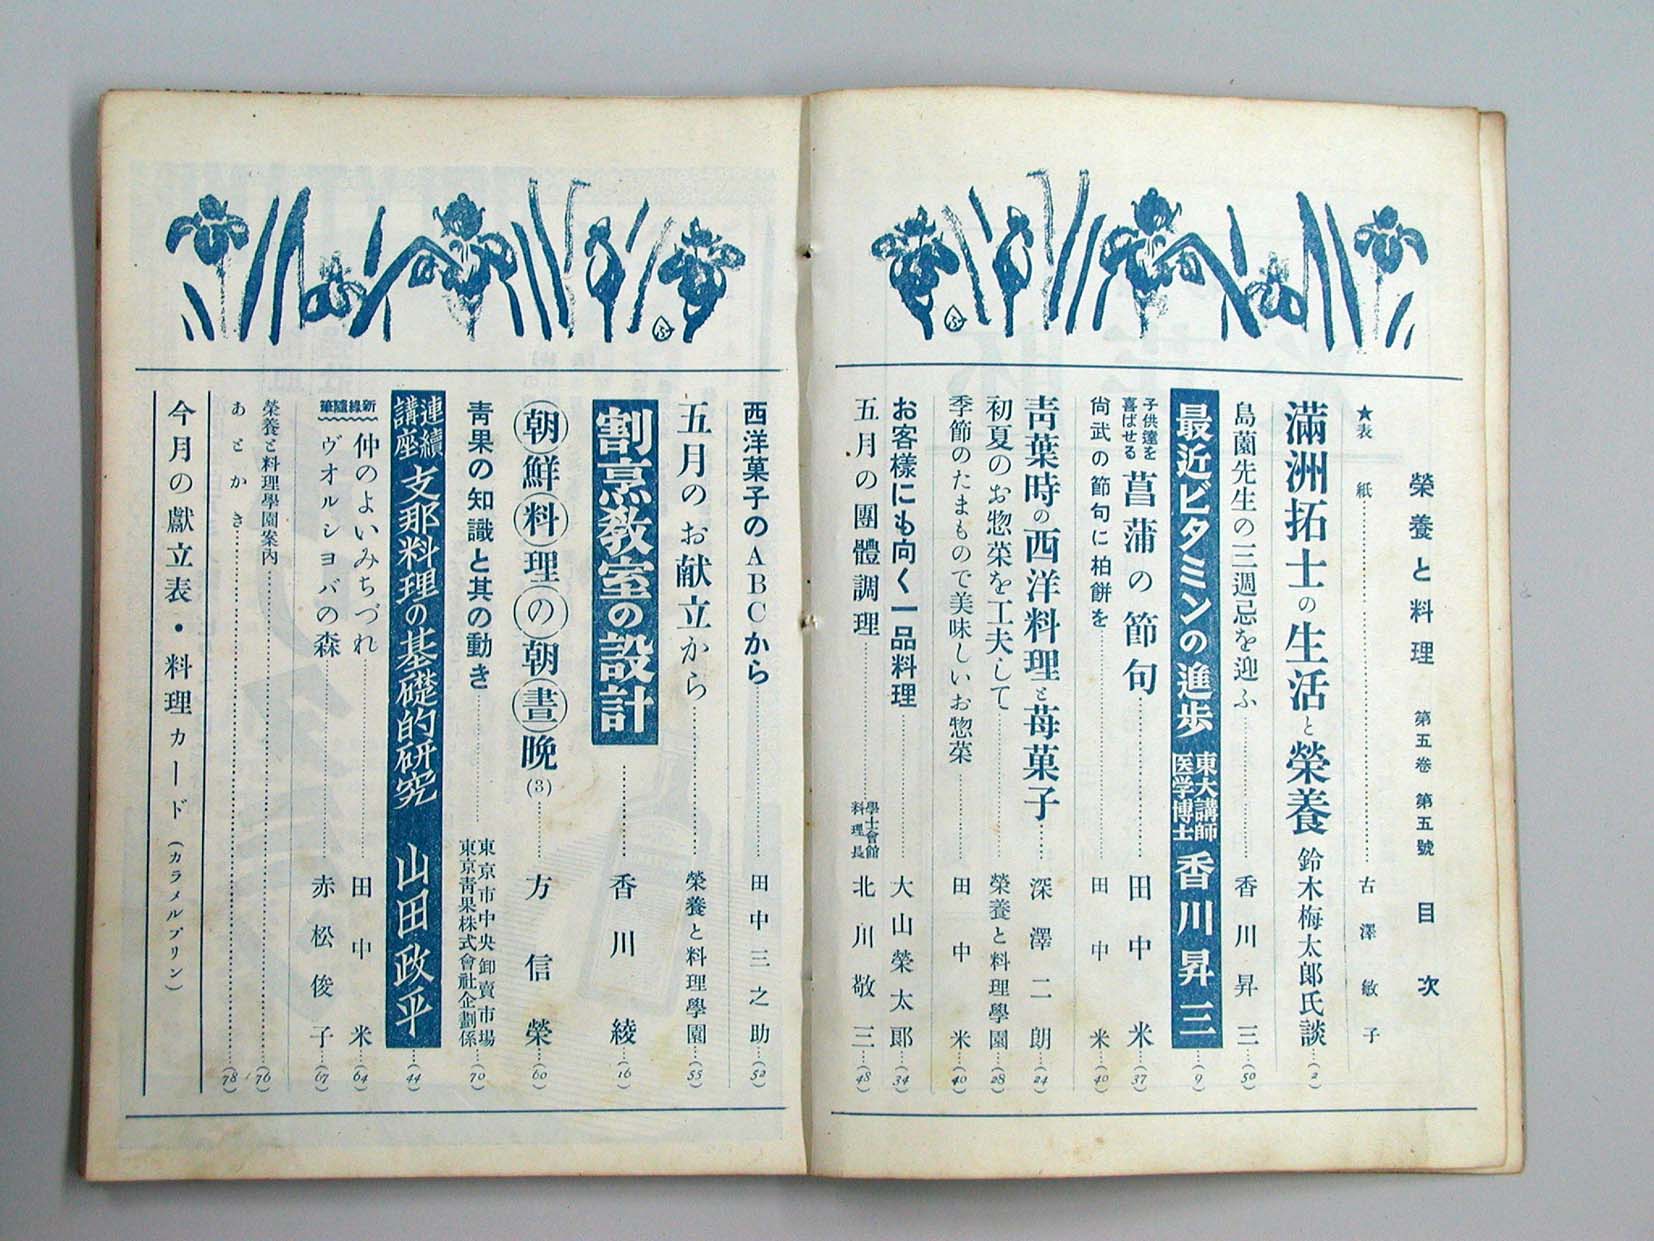 榮養と料理 第五卷 第五號 目次
★表紙 古澤敏子
滿洲拓士の生活と榮養 鈴木梅太郎氏談 (2)
島薗先生の三週忌を迎ふ 香川昇三 (50)
最近ビタミンの進步 東大講師 医学博士 香川昇三 (9)
子供達を喜ばせる 菖蒲の節句 田中米 (37)
尙武の節句に柏餅を 田中米 (40)
靑葉時の西洋料理と苺菓子 深澤二朗 (24)
初夏のお惣菜を工夫して 榮養と料理學園 (28)
季節のたまもので美味しいお惣菜 田中米 (40)
お客樣にも向く一品料理 大山榮太郞 (34)
五月の團體調理 學士會館 料理長 北川敬三 (48)
西洋菓子のABCから 田中三之助 (52)
五月のお献立から 榮養と料理學園 (55)
割烹教室の設計 香川綾 (16)
朝鮮料理の朝晝晩(3) 方信榮 (60)
靑果の知識と其の動き 東京市中央卸賣市場 東京靑果株式會社企劃係 (70)
連續講座 支那料理の基礎的研究 山田政平 (44)
新綠隨筆
仲のよいみちづれ 田中米 (64)
ヴオルシヨバの森 赤松俊子 (67)
榮養と料理學園案內 (76)
あとがき (78)
今月の獻立表・料理カード(カラメルプリン)